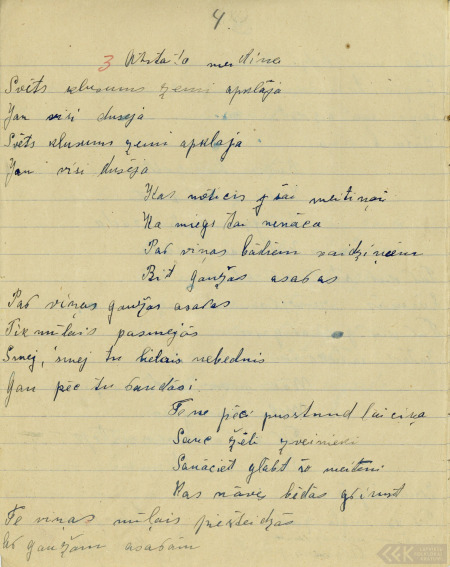 4.
3 meitina
Svēts klusums zemi apklāja
Jau visi dusēja
Svēts klusums zemi apklāja
Jau visi dusēja
Kas noticis šai meitiņai
Ka miegs tai nenāca
Par viņas bēdām vaidziņiem
Rit gaužas asaras
Par viņas gaužas asaras
Tik mīļais pasmejās
Smej, smej tu lielais nebēdnis
Gan pēc tu raudāsi.
Te ne pēc pusstund laiciņa
Sanāciet glābt šo meiteni
Kas nāve bēdās grimst
Te viņas mīļais piesteidzās
Ar gaužām asarām